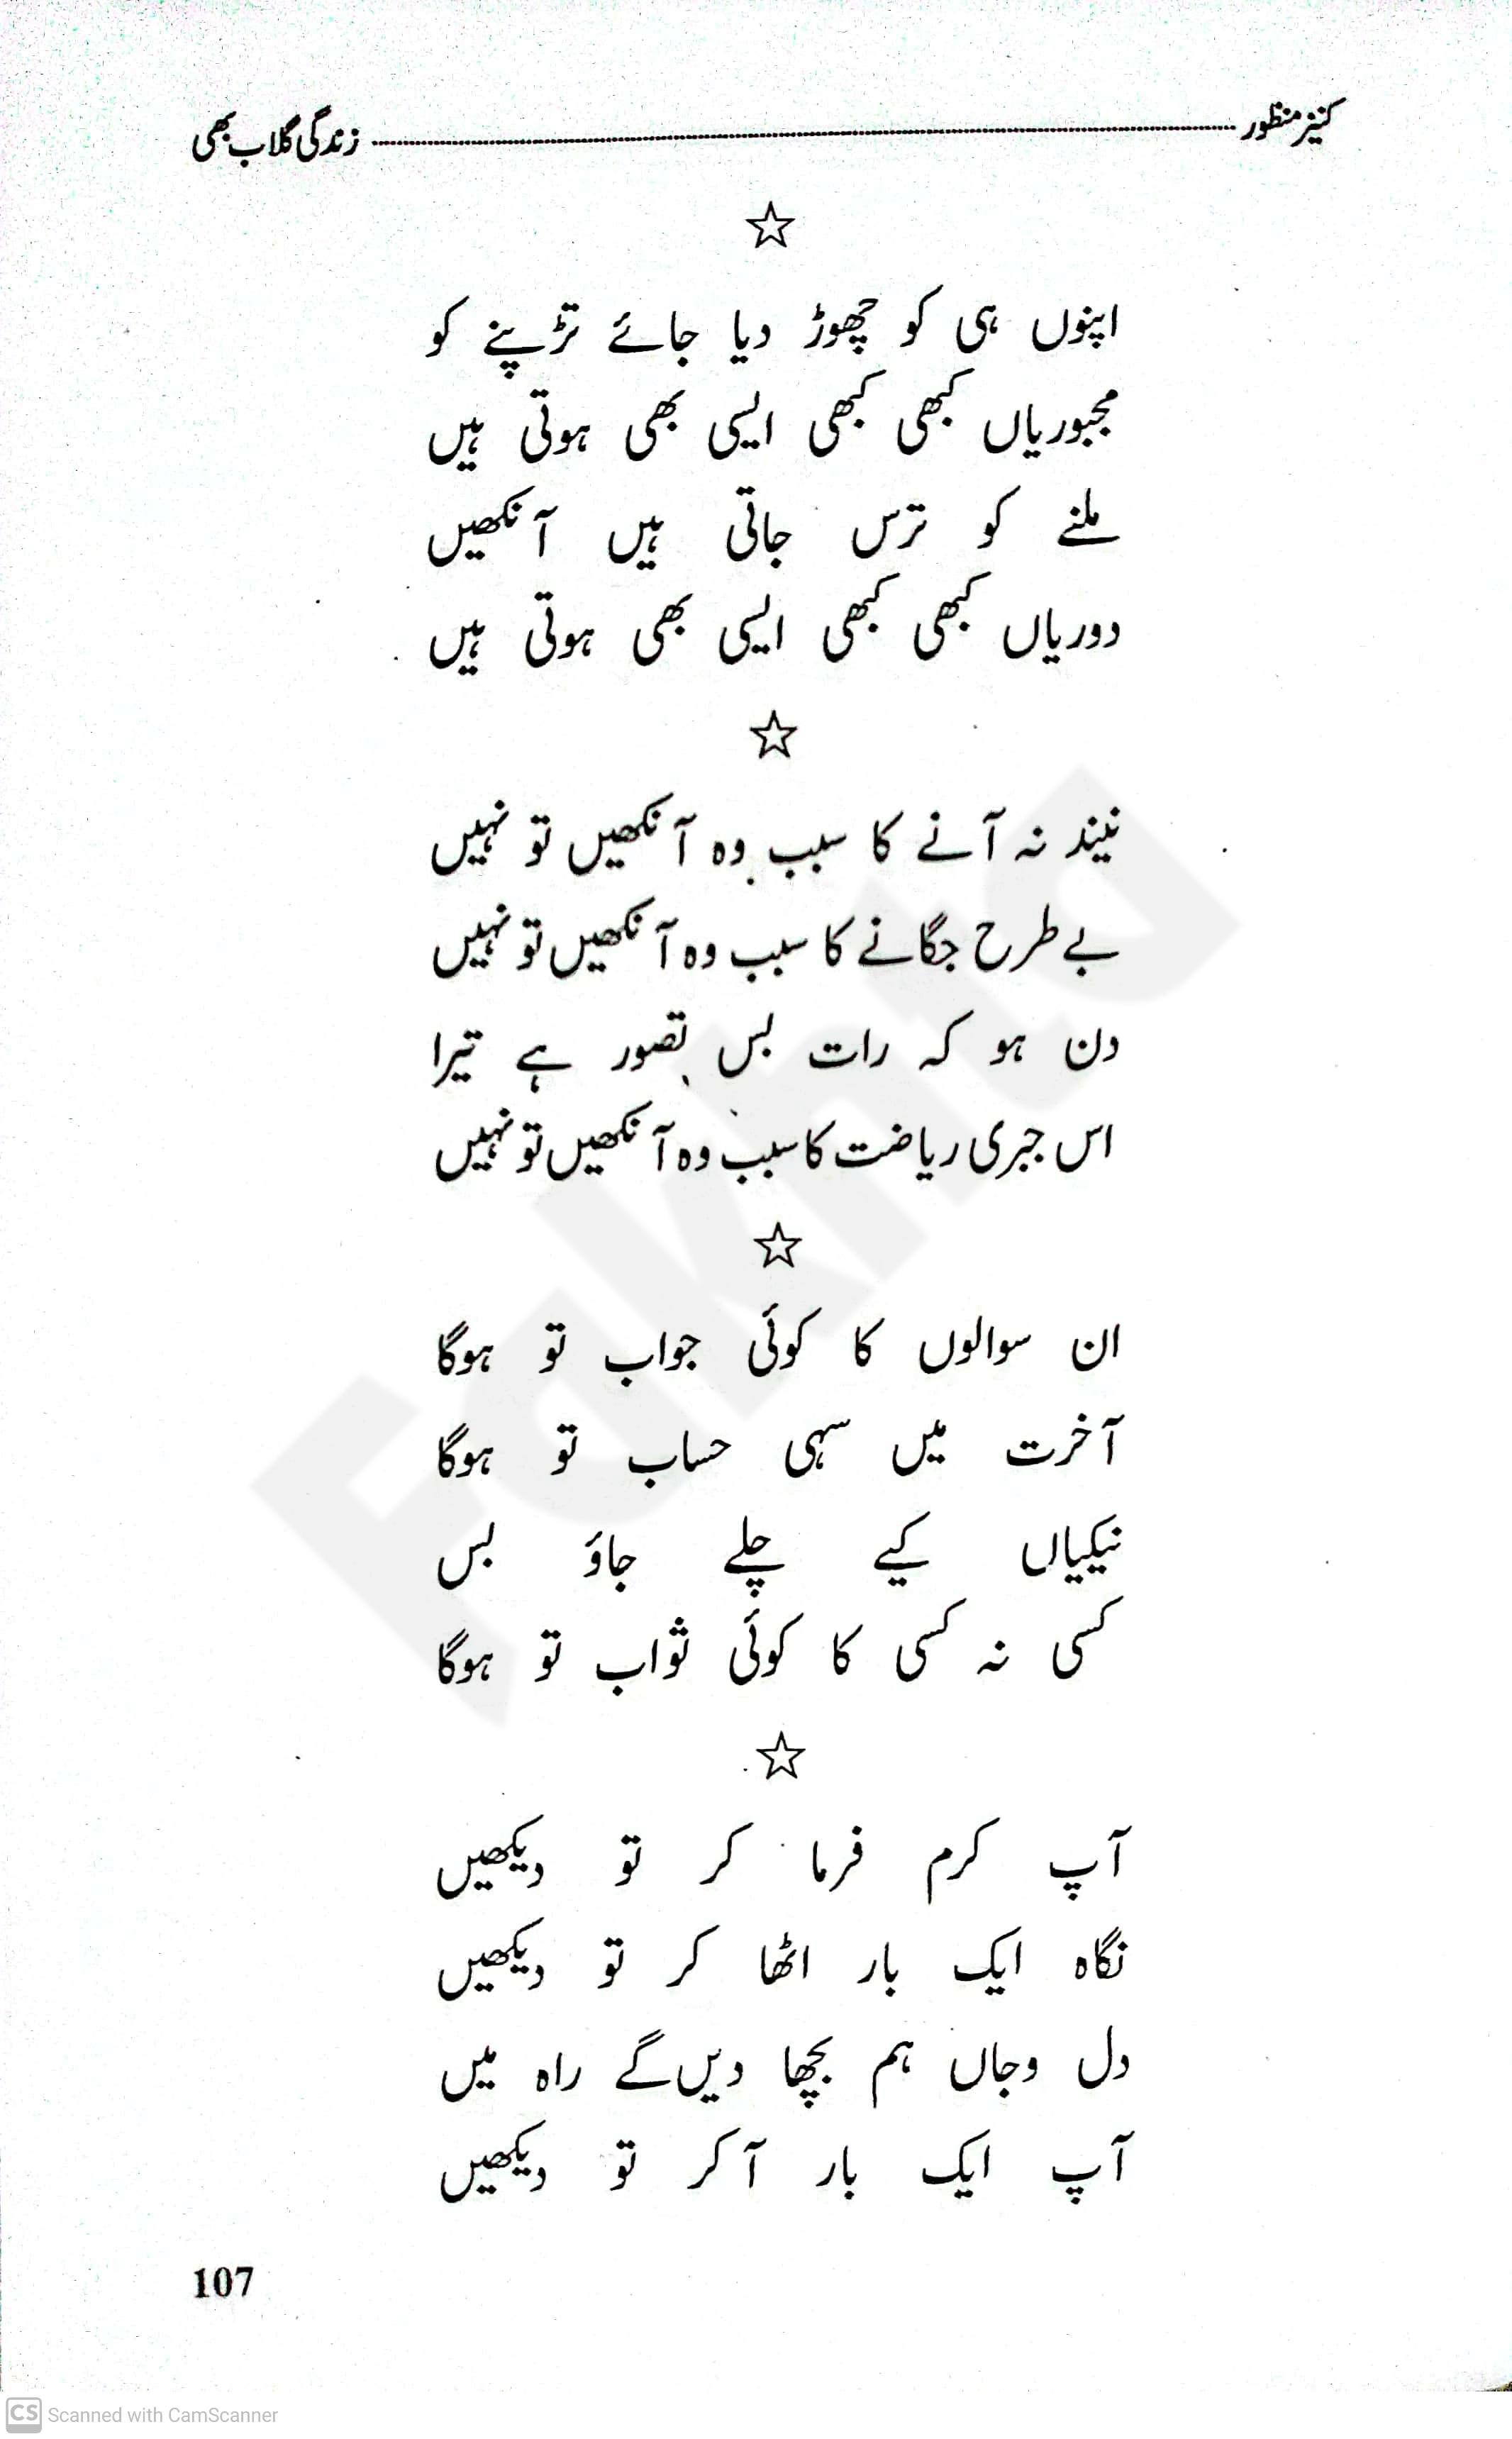 کنیز منظور ........ زندگی گلاب بھی
☆
اپنوں ہی کو چھوڑ دیا جائے تڑپنے کو
مجبوریاں کبھی کبھی ایسی بھی ہوتی ہیں
ملنے کو ترس جاتی ہیں آنکھیں
دوریاں کبھی کبھی ایسی بھی ہوتی ہیں
☆
نیند نہ آنے کا سبب وہ آنکھیں تو نہیں
بے طرح جگانے کا سبب وہ آنکھیں تو نہیں
دن ہو کہ رات بس تصور ہے تیرا
اس جبری ریاضت کا سبب وہ آنکھیں تو نہیں
☆
ان سوالوں کا کوئی جواب تو ہوگا
آخرت میں سہی حساب تو ہوگا
نیکیاں کیے چلے جاؤ بس
کسی نہ کسی کا کوئی ثواب تو ہوگا
☆
آپ کرم فرما کر تو دیکھیں
نگاہ ایک بار اٹھا کر تو دیکھیں
دل وجاں ہم بچھا دیں گے راہ میں
آپ ایک بار آ کر تو دیکھیں
107
Fakhta
CS Scanned with CamScanner